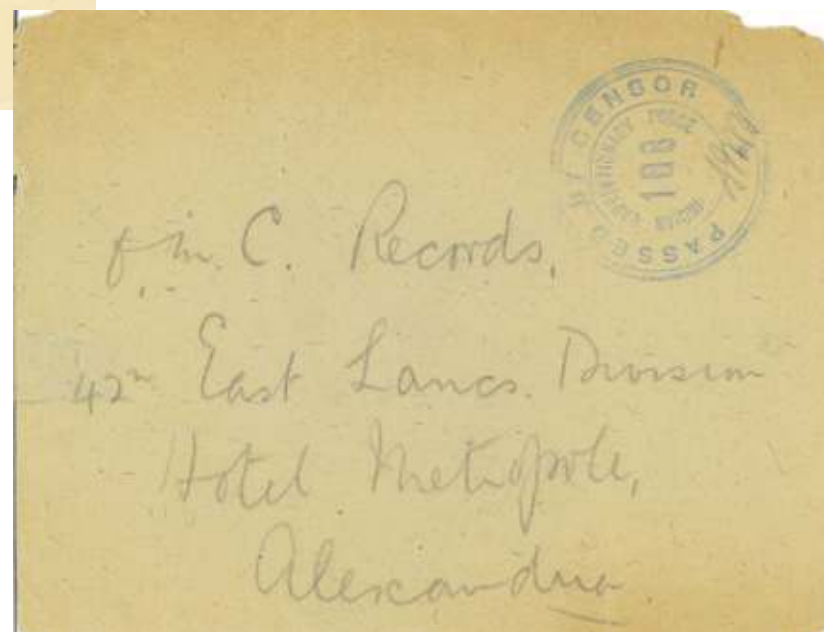 PASSED BY CENSOR
INDIAN EXPEDITIONARY FORCE
188
C. Records,
42ⁿ East Lancs. Division
Hotel Metropole,
Alexandria